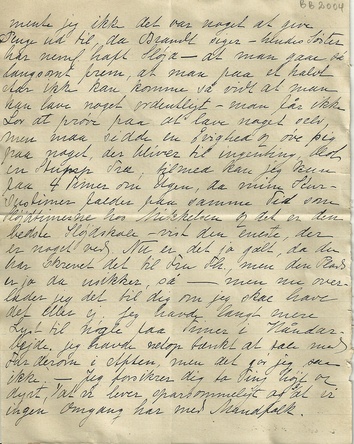 BB2004
mente jeg ikke det var noget at give
Penge ud til, da Brandt siger -
har nemlig haft Sløjd - at man gaar saa
langsomt frem, at man paa et halvt
Aar ikke kan komme saa vidt at man
kan lave noget ordentligt - man faar ikke
Lov at prøve paa at lave noget selv,
men maa sidde en Evighed og øve sig
paa noget, der bliver til ingenting, blot
en Stump Træ, tilmed kan jeg kun
faa 4 Timer om Ugen, da mine
Timer falder paa samme Tid som
hos Mikkelsen og det er den
bedste Sløjdskole - vist den eneste, der
er noget ved. Nu er det jo galt, da du
har skrevet det til Fru Th., men den Plads
er jo da usikker, så - men nu over-
lader jeg det til dig om jeg skal have
det eller ej, jeg havde langt mere
Lyst til nogle faa Timer i Haandar-
bejde, jeg havde netop tænkt at tale med
Far derom i Aften, men det gør jeg saa
ikke. - Jeg forsikrer dig to Ting højt og
dyrt, 1 at vi lever sparsommeligt og at vi
ingen Omgang har med Mandfolk.